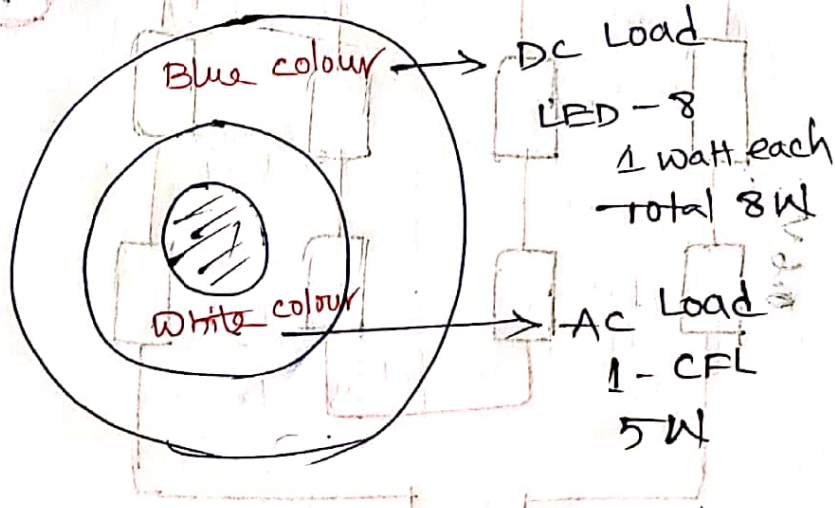 Blue colour
DC Load
LED - 8
1 watt each
Total 8W
White colour
AC Load
1 - CFL
5W